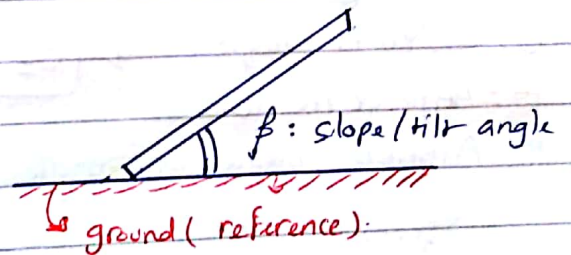 β : slope/tilt angle
ground( reference).